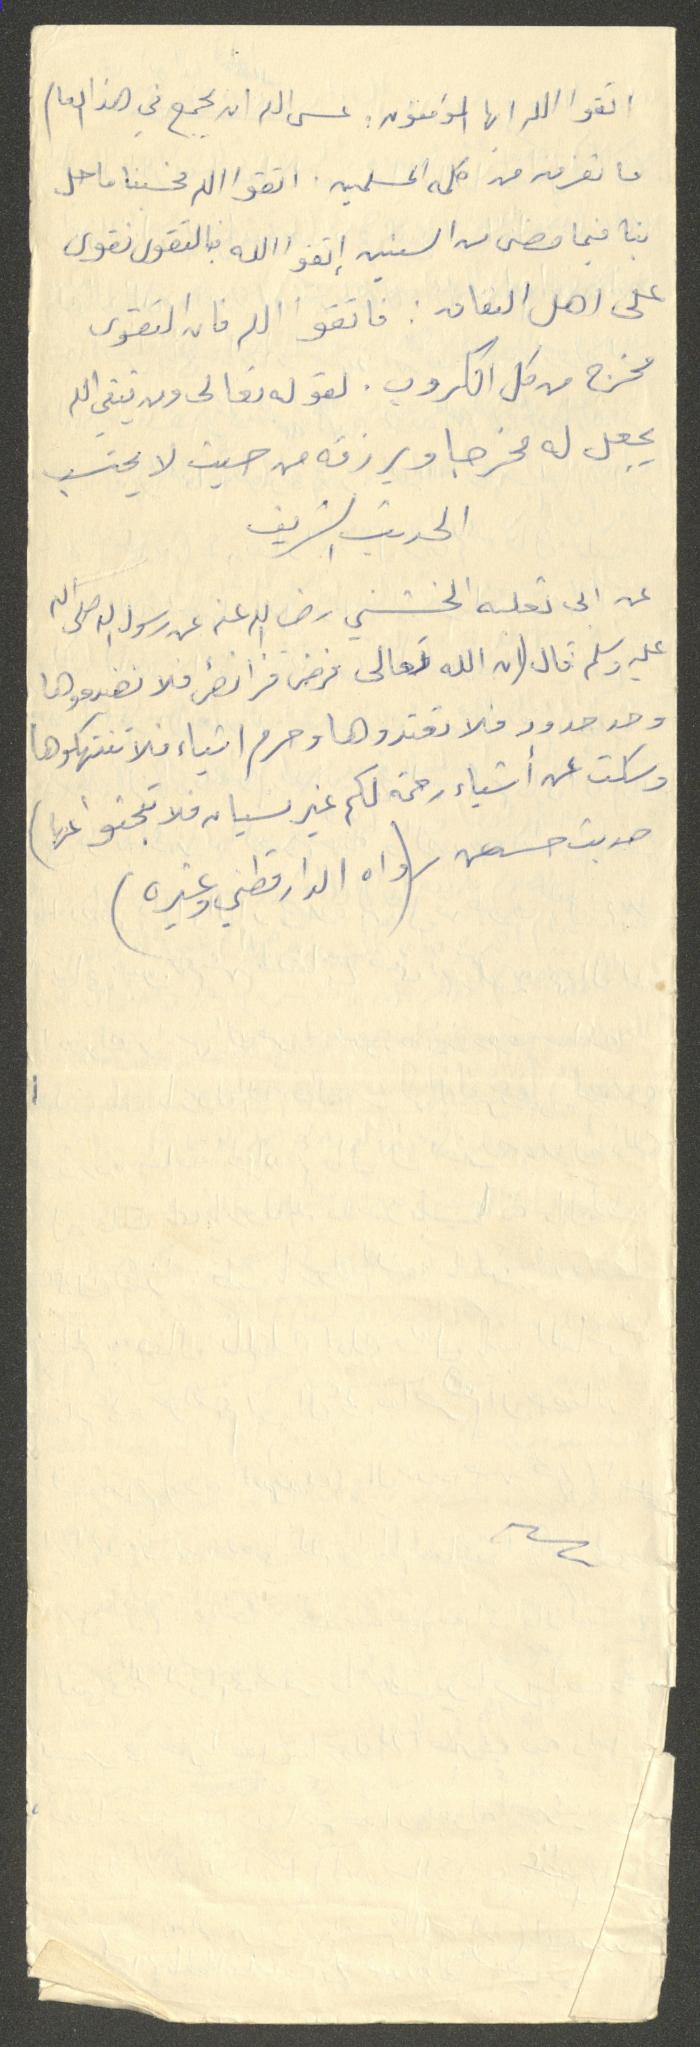 اتقوا الله ايها المؤمنون: عسى الله ان يجمع في هذا العام
ما تفرق من كلمة المسلمين. اتقوا الله فحسبنا ما حل
بنا فيما مضى من السنين إتقوا الله فبالتقوى نقوى
على اهل النفاق: فاتقوا الله فان التقوى
مخرج من كل الكروب. لقوله تعالى ومن يتقي الله
يجعل له مخرجا ويرزقه من حيث لا يحتسب
الحديث الشريف
عن ابي ثعلبه الخشني رضي الله عنه عن رسول الله صلى الله
عليه وسلم قال (ان الله تعالى فرض فرائض فلا تضيعوها
وحد حدود فلا تعتدوها وحرم اشياء فلا تنتهكوها
وسكت عن أشياء رحمة لكم غير نسيان فلا تبحثوا عنها)
حديث حسن (رواه الدارقطني وغيره)